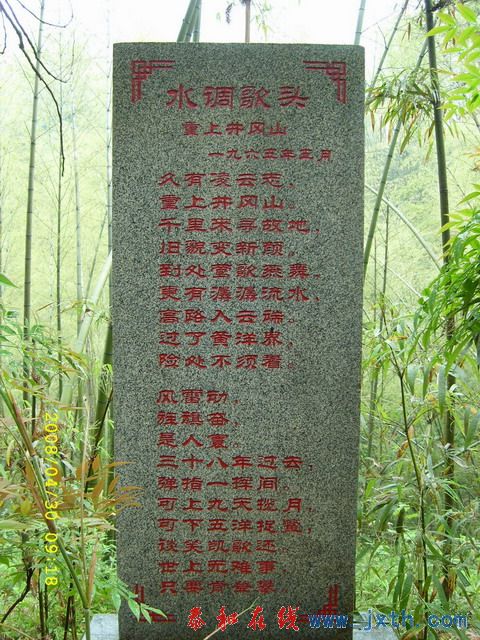 水调歌头
重上井冈山
一九六五年五月
久有凌云志，
重上井冈山。
千里来寻故地，
旧貌变新颜。
到处莺歌燕舞，
更有潺潺流水，
高路入云端。
过了黄洋界，
险处不须看。
风雷动，
旌旗奋，
是人寰。
三十八年过去，
弹指一挥间。
可上九天揽月，
可下五洋捉鳖，
谈笑凯歌还。
世上无难事
只要肯登攀
2008/04/30 09:18
泰和在线 www.jxth.com